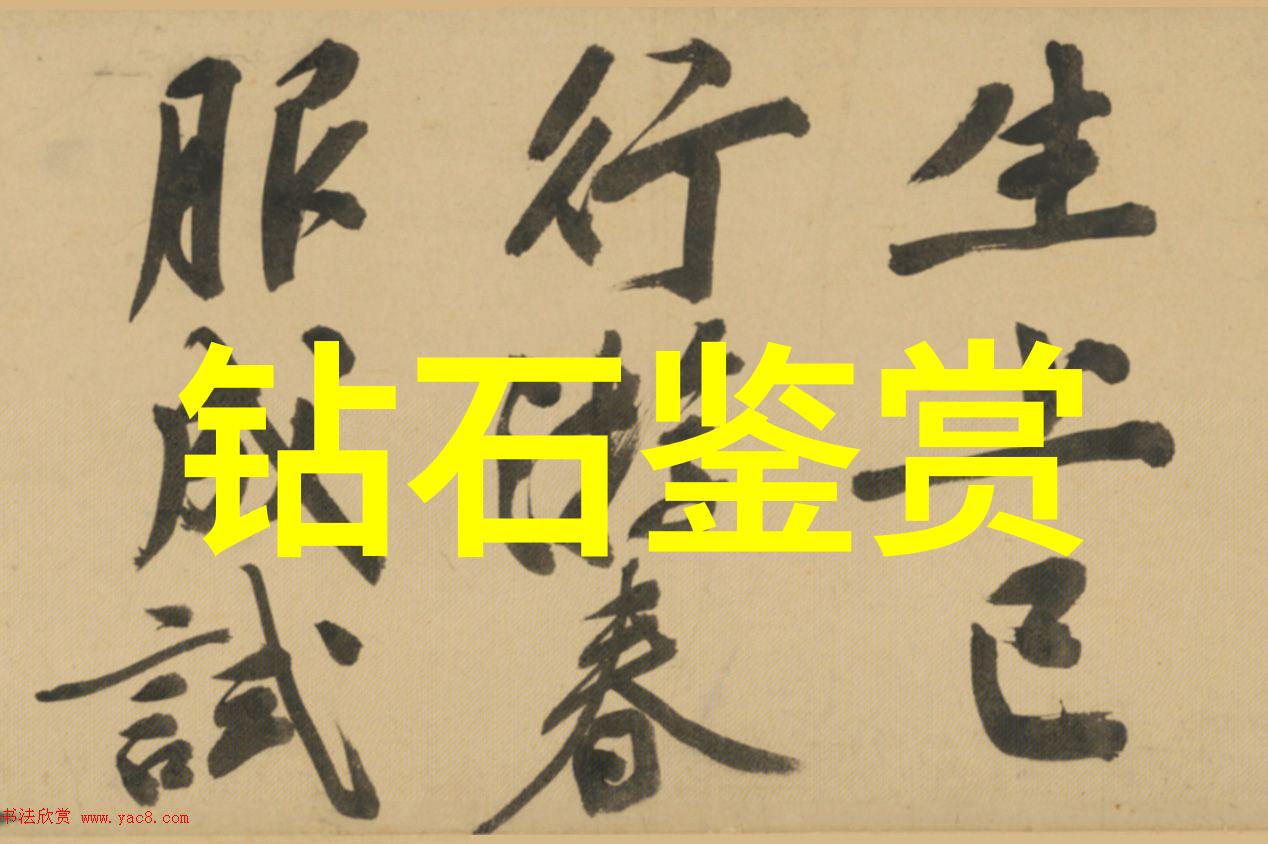 生已
行春
服成試
钻石鉴赏
书法欣赏 www.yac8.com